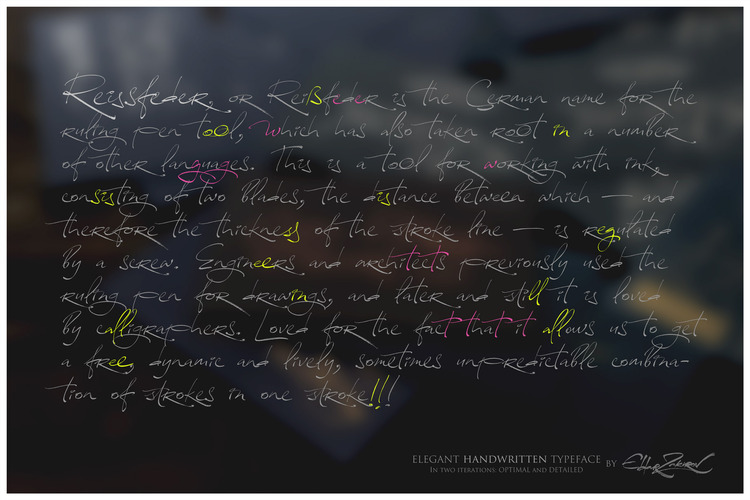 Reissfeder, or Reißfeder is the German name for the
ruling pen tool, which has also taken root in a number
of other languages. This is a tool for working with ink,
consisting of two blades, the distance between which — and
therefore the thickness of the stroke line — is regulated
by a screw. Engineers and architects previously used the
ruling pen for drawings, and later and still it is loved
by calligraphers. Loved for the fact that it allows us to get
a free, dynamic and lively, sometimes unpredictable combina-
tion of strokes in one stroke!!!
ELEGANT HANDWRITTEN TYPEFACE BY
IN TWO ITERATIONS: OPTIMAL AND DETAILED